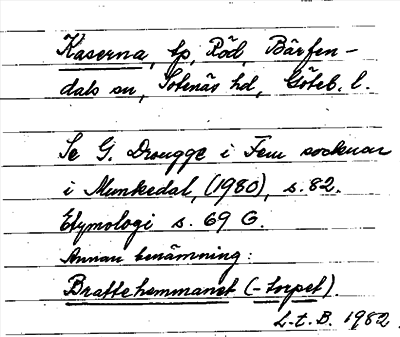 Kaserna, tp, Röd, Bärfen-
dals sn, Sotenäs hd, Göteb. l.
Se G. Drougge i Fem socknar
i Munkedal, (1980), s. 82.
Etymologi s. 69 G.
Annan benämning:
Brattehemmanet (-torpet).
L-t. B. 1982.